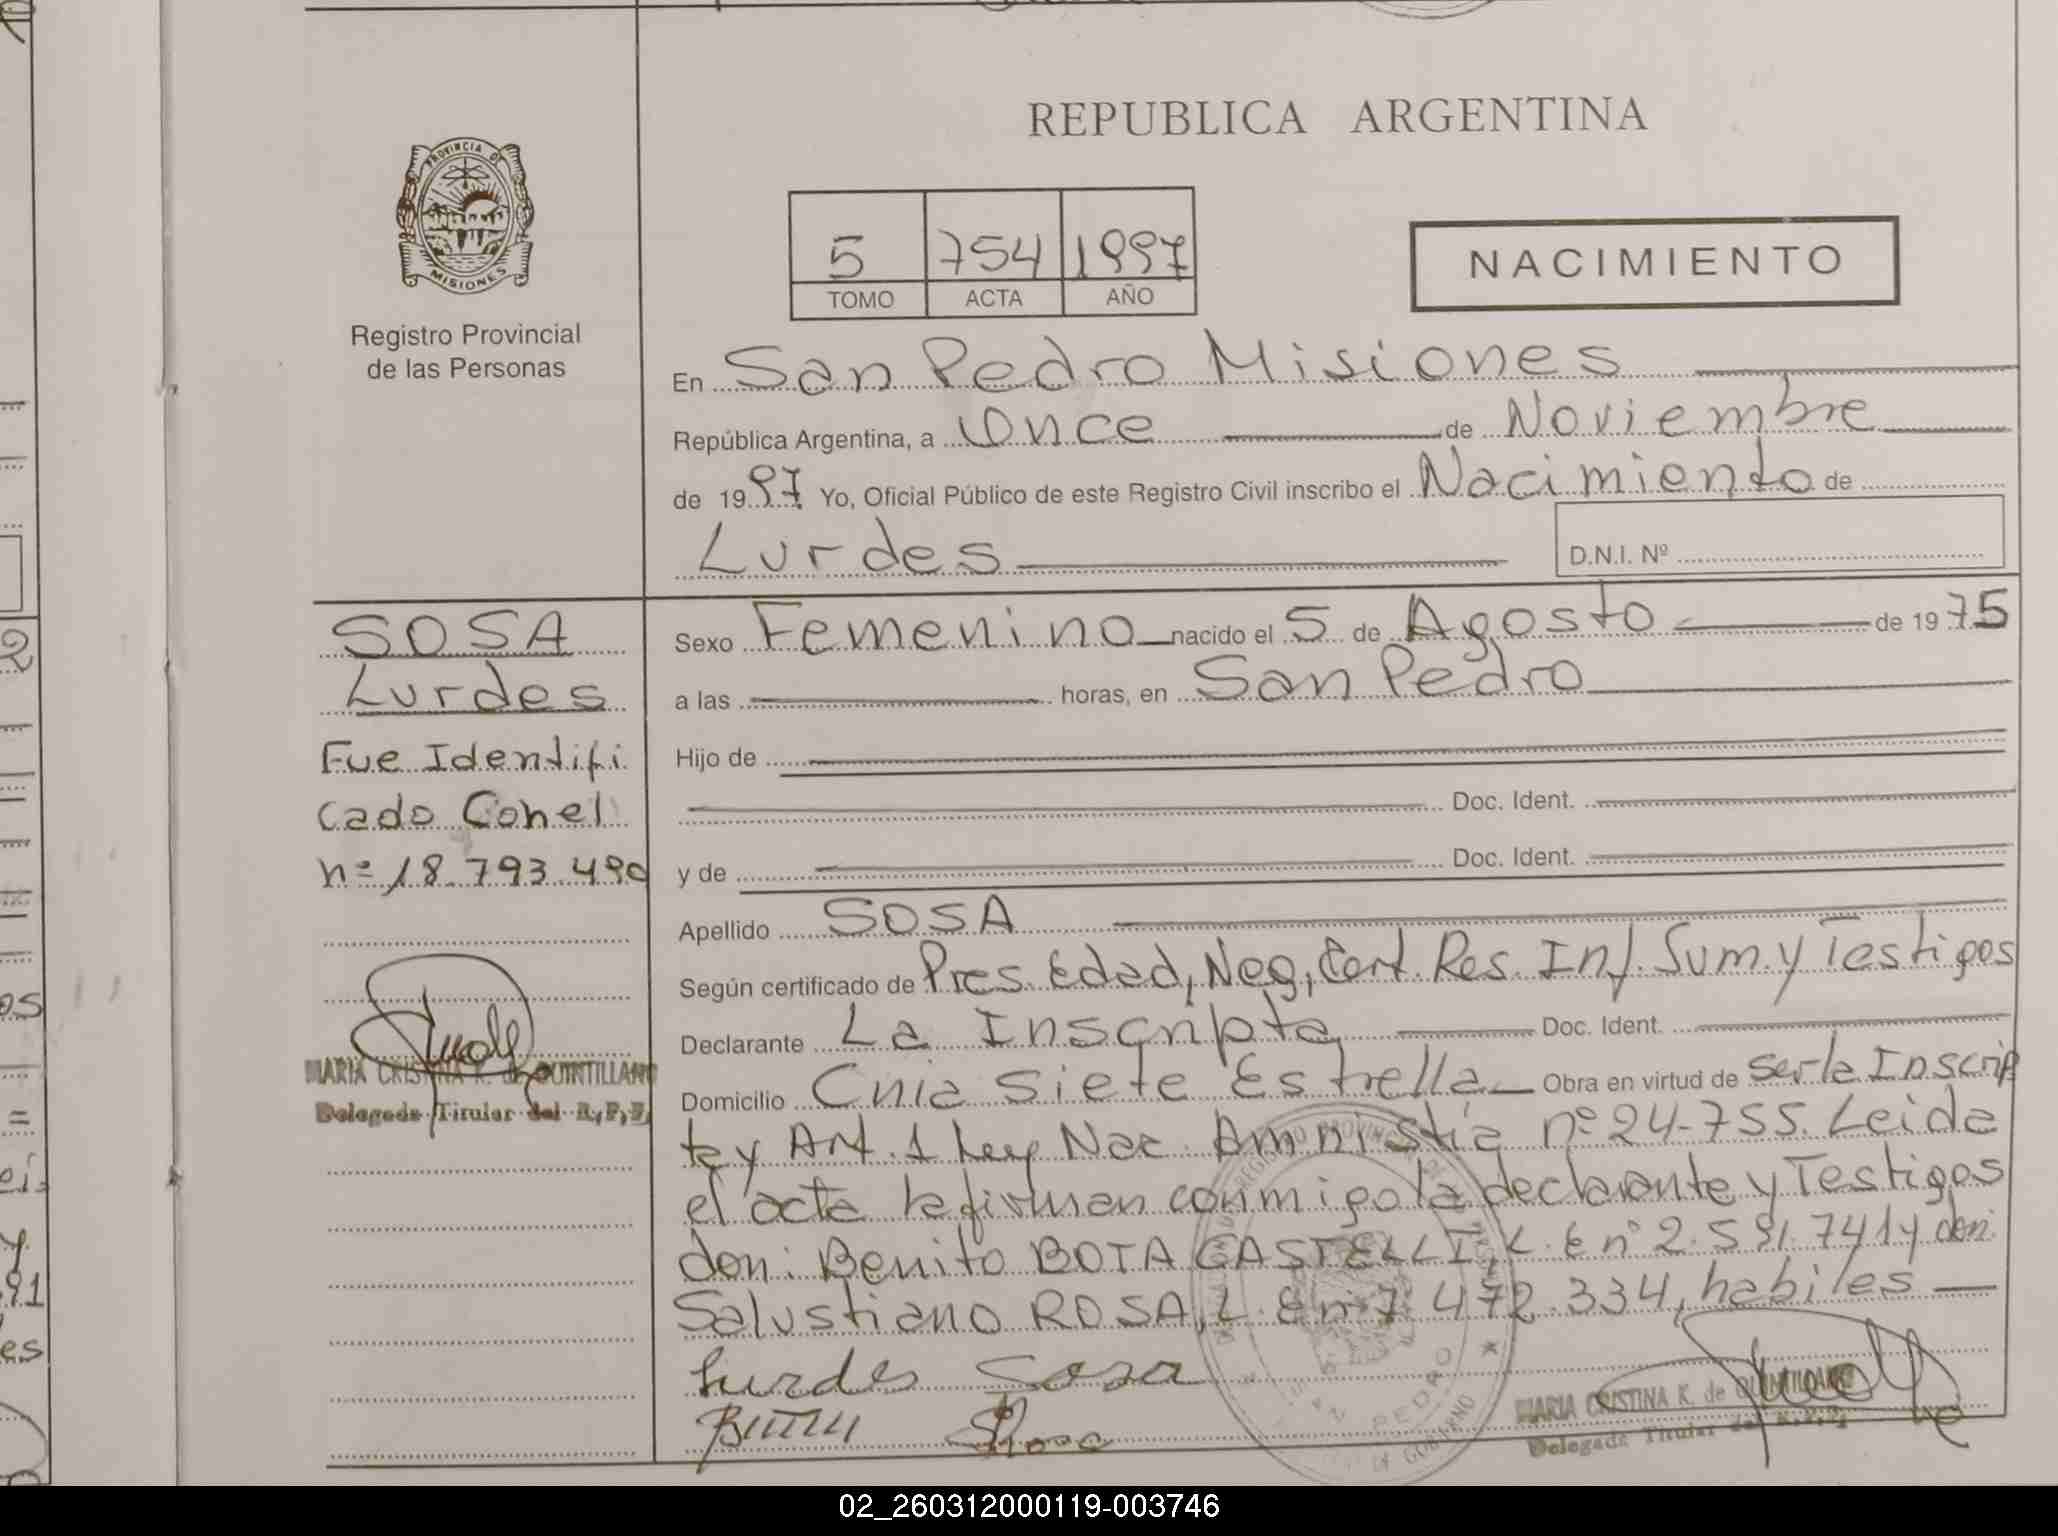 REPUBLICA ARGENTINA
PROVINCIA DE
MISIONES
Registro Provincial
de las Personas
5 754 1997
TOMO ACTA AÑO
NACIMIENTO
En San Pedro Misiones
República Argentina, a Once de Noviembre
de 1997 Yo, Oficial Público de este Registro Civil inscribo el Nacimiento de
Lurdes
D.N.I. Nº
SOSA
Lurdes
Fue Identifi
cado Con el
nº 18.793.490
MARIA CRISTINA K. de QUINTILLANO
Delegada Titular del R.P.P.
Sexo Femenino nacido el 5 de Agosto de 1975
a las horas, en San Pedro
Hijo de
Doc. Ident.
y de Doc. Ident.
Apellido SOSA
Según certificado de Pres. Edad, Neg, Cert. Res. Inf. Sum. y Testigos
Declarante La Inscripta Doc. Ident.
Domicilio Cnia Siete Estrella Obra en virtud de ser la Inscrip
ta y Art. 1 Ley Nac. Amnistia nº 24-755. Leida
el acta la firman conmigo la declarante y Testigos
don: Benito BOTA CASTELLI, L. E nº 2.591.741 y don:
Salustiano ROSA, L. E nº 7.472.334, habiles
Lurdes Sosa
Rosa
SAN PEDRO
DE GOBIERNO
MARIA CRISTINA K. de QUINTILLANO
Delegada Titular del R.P.P.
02_260312000119-003746